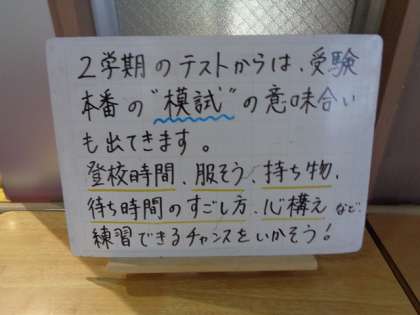 2学期のテストからは、受験
本番の"模試"の意味合い
も出てきます。
登校時間、服そう、持ち物、
待ち時間のすごし方、心構えなど、
練習できるチャンスをいかそう!